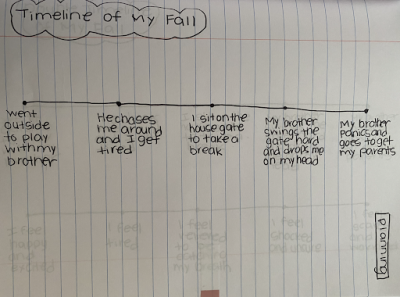 Timeline of My Fall
went
outside
to play
with my
brother
He chases
me around
and I get
tired
I sit on the
house gate
to take a
break
My brother
swings the
gate hard
and drops me
on my head
My brother
panics and
goes to get
my parents
planning
I feel
happy
and
excited
I feel
tired
I feel